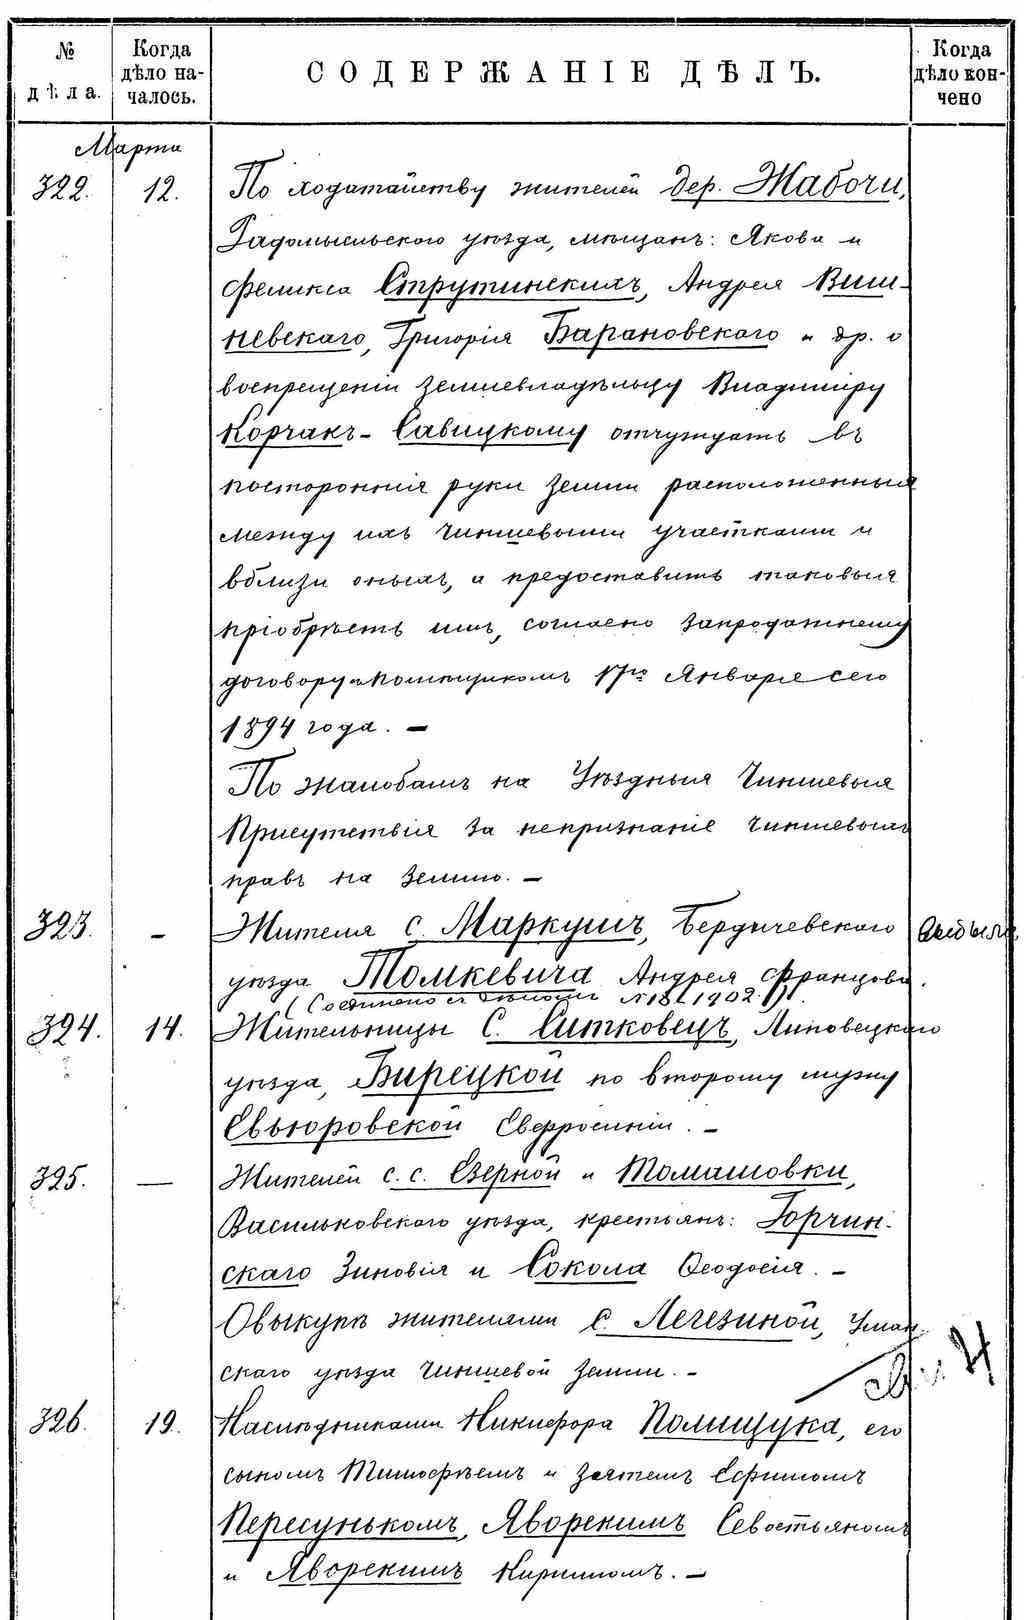 № дѣла.
Когда дѣло на-
чалось.
СОДЕРЖАНІЕ ДѢЛЪ.
Когда дѣло кон-
чено
Марта
322. 12. По ходатайству жителей дер. Жабочи,
Радомысльского уѣзда, мѣщанъ: Якова и
Феликса Струтинскихъ, Андрея Виш-
невскаго, Григорія Барановского и др. о
воспрещеніи землевладѣльцу Владиміру
Корчакъ-Савицкому отчуждать въ
постороннія руки земли расположенныя
между ихъ чиншевыми участками и
вблизи оныхъ, а предоставить таковыя
пріобрѣсть имъ, согласно запродажному
договору 17го Января сего
1894 года. —
По жалобамъ на Уѣздныя Чиншевыя
Присутствія за непризнаніе чиншевыхъ
правъ на землю. —
323. — Жителя с. Маркушъ, Бердичевского
уѣзда Томкевича Андрея Францова.
(Соединено съ дѣломъ № 18 1902 г.)
324. 14. Жительницы С. Ситковецъ, Липовецкаго
уѣзда, Бирецкой по второму мужу
Евьюровской Евфросиніи. —
325. — Жителей с. с. Езерной и Томашовки,
Васильковского уѣзда, крестьянъ: Горчин-
скаго Зиновія и Сокола Ѳеодосія. —
О выкупѣ жителями с. Легезиной, Уман-
скаго уѣзда чиншевой земли. —
326. 19. Наслѣдниками Никифора Полищука, его
сыномъ Тимофѣемъ и зятемъ Ефимомъ
Пересунькомъ, Яворскимъ Севостьяномъ
и Яворскимъ Кириломъ. —